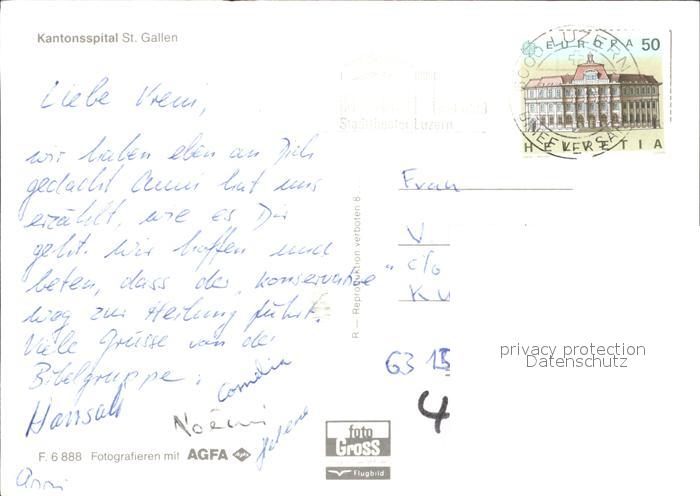 Kantonsspital St. Gallen
EUROPA 50
LUZERN
HELVETIA
Stadttheater Luzern
Liebe Vreni,
wir haben eben an Dich
gedacht Anni hat uns
erzählt, wie es Dir
geht. Wir hoffen und
beten, dass der „konservative"
Weg zur Heilung führt.
Viele Grüsse von der
Bibelgruppe.
Cornelia
Noëmi
Anni
Frau
V
c/o
Ku
G3 15
4
R — Reproduktion verboten 8
privacy protection
Datenschutz
F. 6 888 Fotografieren mit AGFA
foto
Gross
Flugbild